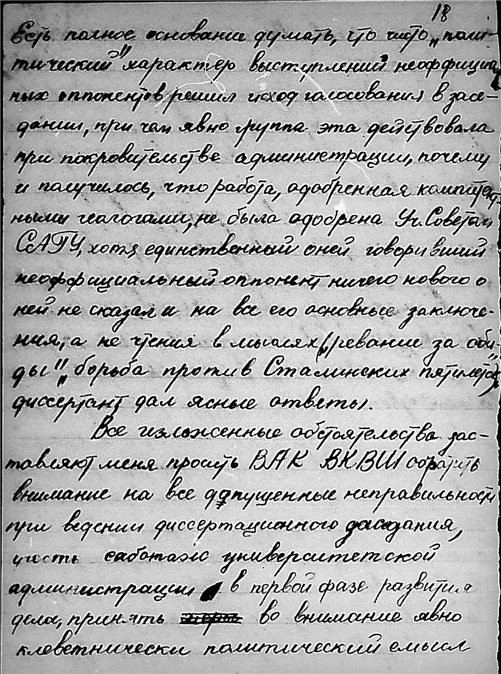 18
Есть полное основание думать, что чисто „поли-
тический" характер выступлений неоффициаль
ных оппонентов решил исход голосования в засе-
дании, при чем явно группа эта действовала
при покровительстве администрации, почему
и получилось, что работа, одобренная компетент
ными геологами, не была одобрена Уч. Советом
САГУ, хотя единственный о ней говоривший
неоффициальный оппонент ничего нового о
ней не сказал и на все его основные заключе-
ния, а не чтения в мыслях („реванш за оби-
ды" „борьба против Сталинских пятилеток
диссертант дал ясные ответы.
Все изложенные обстоятельства зас-
тавляют меня просить ВАК ВКВШ обратить
внимание на все допущенные неправильности
при ведении диссертационного заседания,
учесть саботаж университетской
администрации в первой фазе развития
дела, принять во внимание явно
клеветнически политический смысл